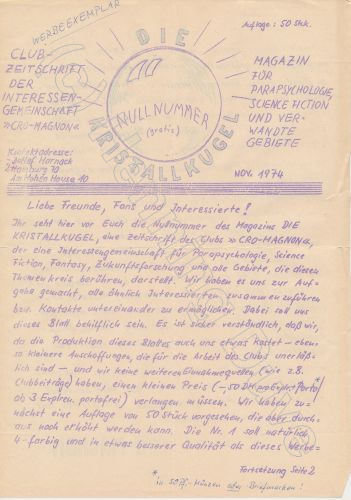 WERBEEXEMPLAR
Auflage: 50 Stk.
DIE
KRISTALLKUGEL
NULLNUMMER
(gratis)
CLUB-
ZEITSCHRIFT
DER
INTERESSEN-
GEMEINSCHAFT
»CRO-MAGNON«
Kontaktadresse:
Detlef Harnack
2 Hamburg 70
Am Hohen Hause 10
MAGAZIN
FÜR
PARAPSYCHOLOGIE,
SCIENCE FICTION
UND VER-
WANDTE
GEBIETE
NOV. 1974
Liebe Freunde, Fans und Interessierte!
Ihr seht hier vor Euch die Nullnummer des Magazins DIE
KRISTALLKUGEL, eine Zeitschrift des Clubs »CRO-MAGNON«,
der eine Interessengemeinschaft für Parapsychologie, Science
Fiction, Fantasy, Zukunftsforschung und alle Gebiete, die diesen
Themenkreis berühren, darstellt. Wir haben es uns zur Auf-
gabe gemacht, alle ähnlich Interessierten zusammenzuführen
bzw. Kontakte untereinander zu ermöglichen. Dabei soll uns
dieses Blatt behilflich sein. Es ist sicher verständlich, daß wir,
da die Produktion dieses Blattes auch uns etwas kostet – eben-
so kleinere Anschaffungen, die für die Arbeit des Clubs unerläß-
lich sind – und wir keine weiteren Einnahmequellen (wie z.B.
Clubbeiträge) haben, einen kleinen Preis (-,50 DM pro Expl. + Porto*
ab 3 Explren. portofrei) verlangen müssen. Wir haben zu-
nächst eine Auflage von 50 Stück vorgesehen, die aber durch-
aus noch erhöht werden kann. Die Nr. 1 soll natürlich
4-farbig und in etwas besserer Qualität als dieses Werbe-
Fortsetzung Seite 2
* in 50 Pf.-Münzen oder Briefmarken!